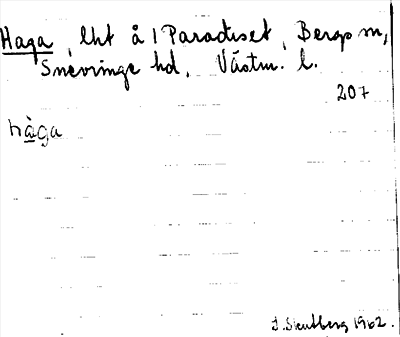 Haga, lht å 1 Paradiset, Bergs sn,
Snevringe hd, Västm. l.
207
hàga
1962.